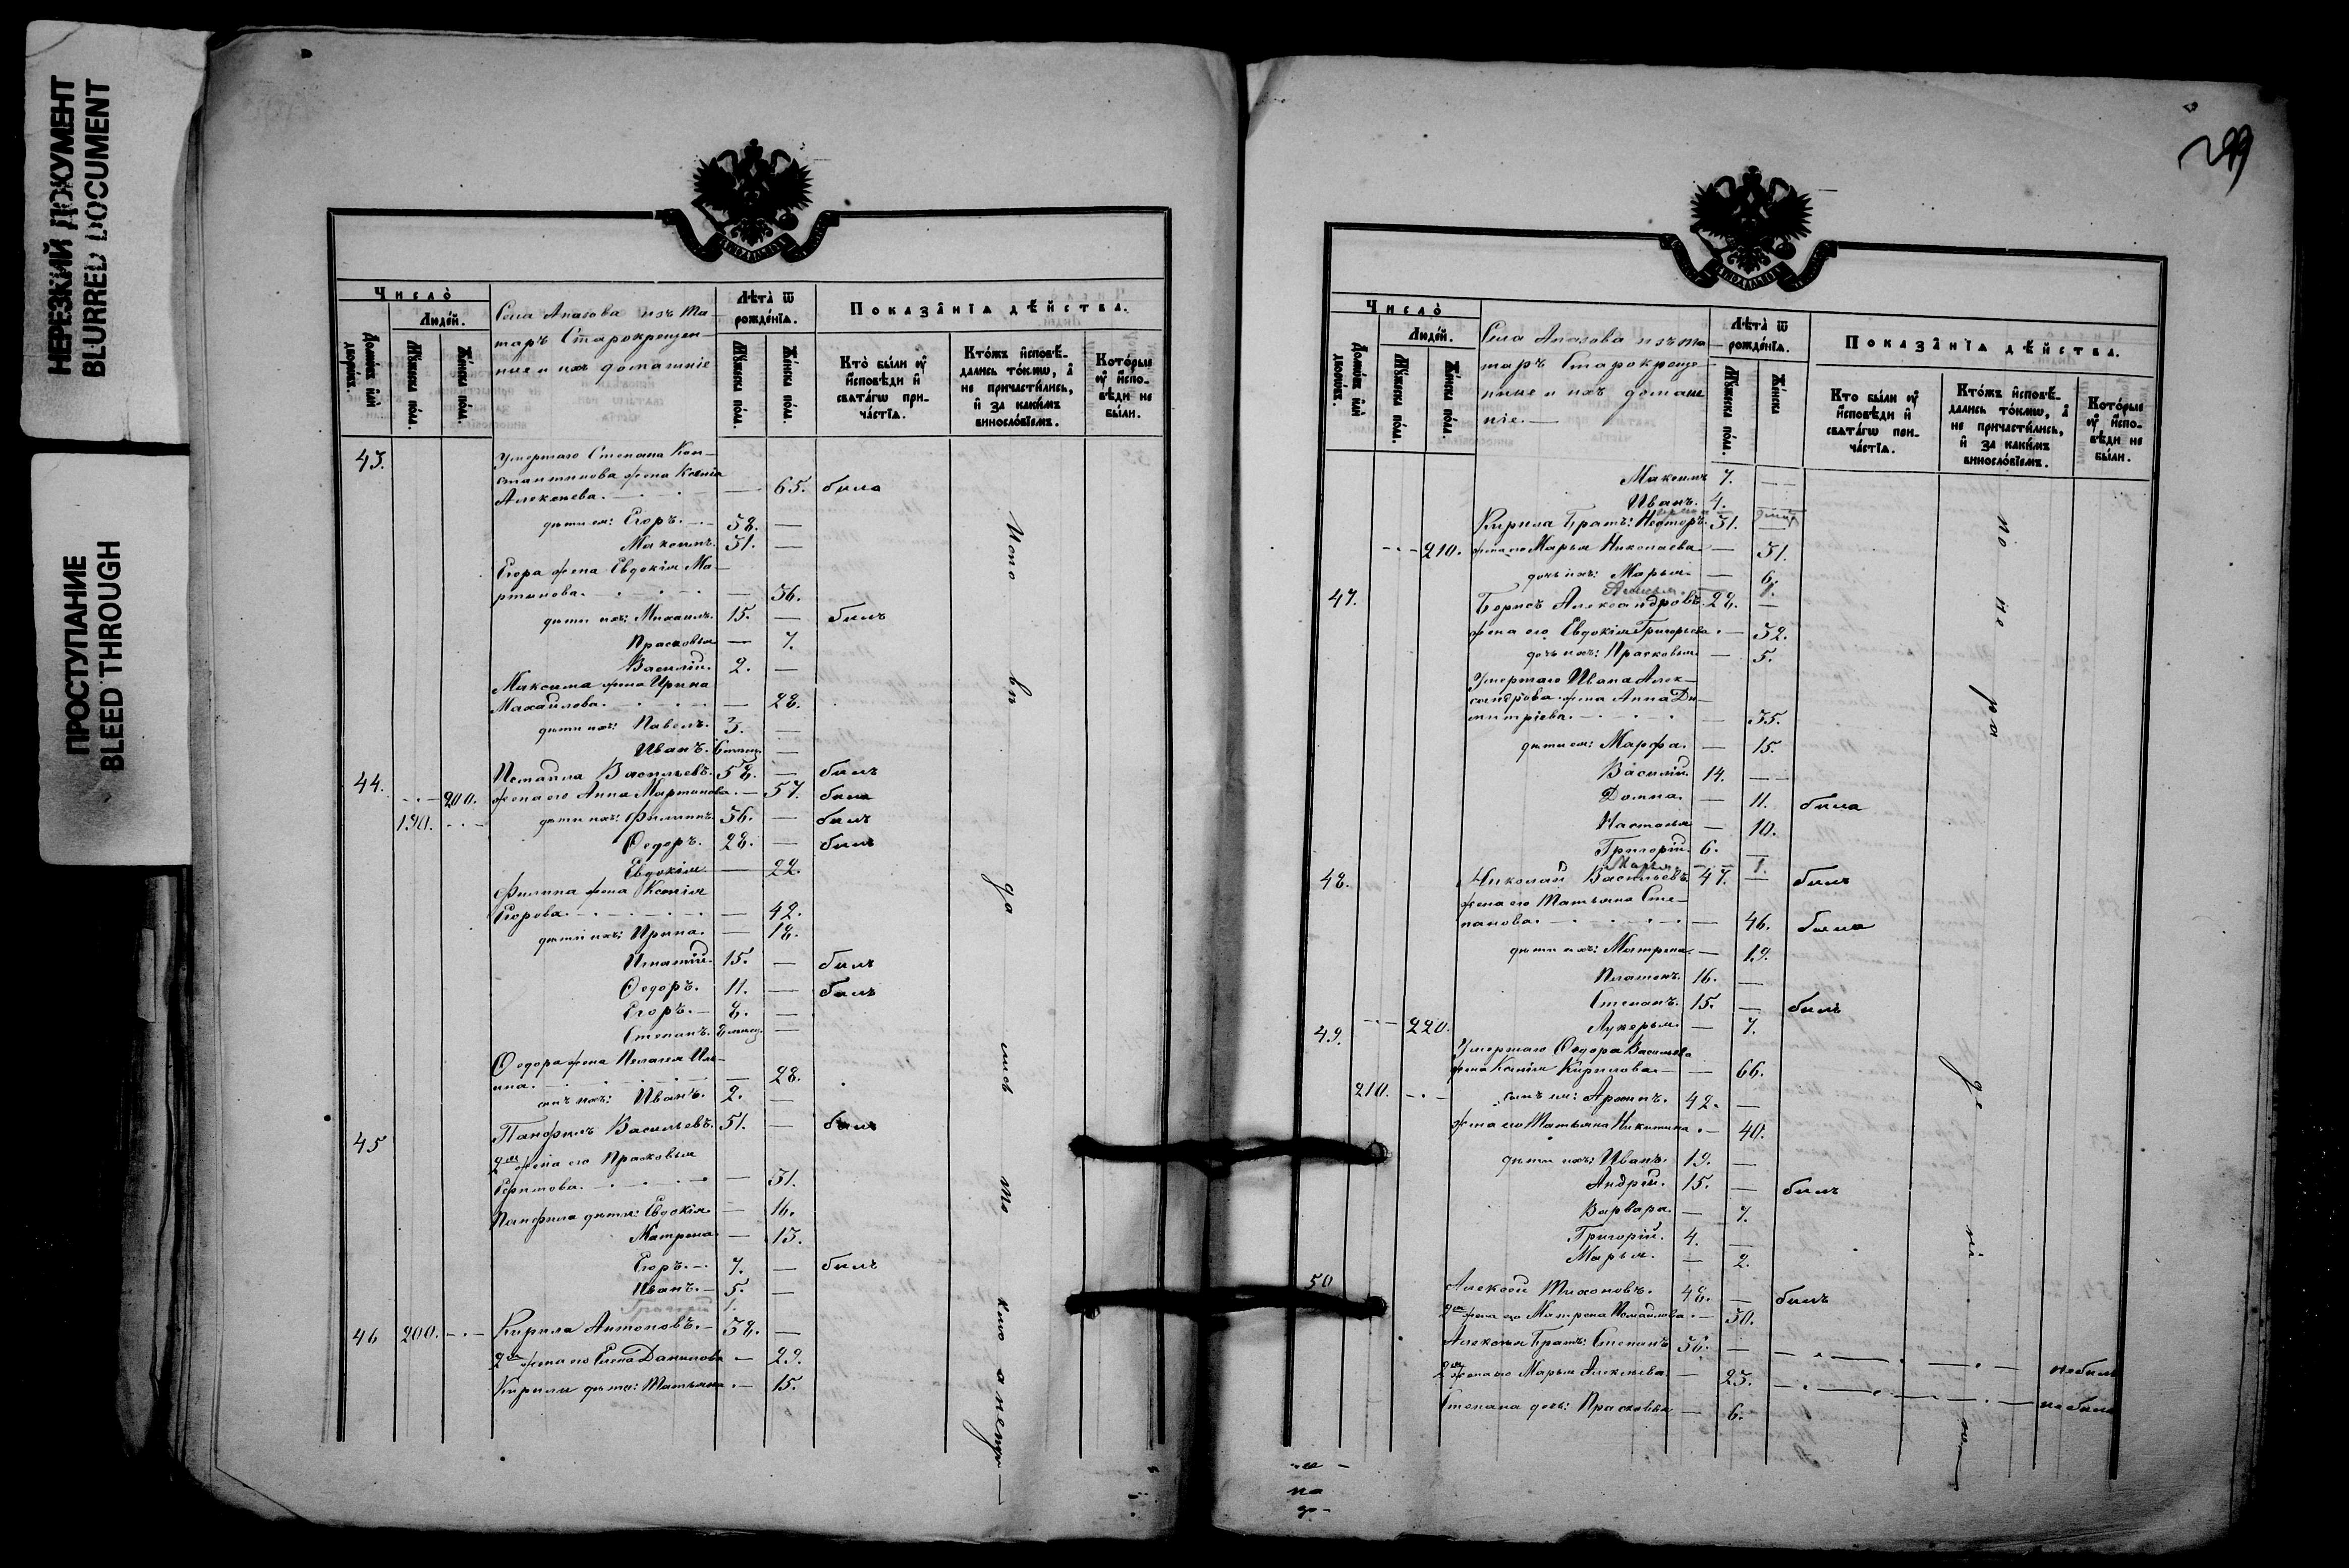 НЕРЕЗКИЙ ДОКУМЕНТ
BLURRED DOCUMENT
ПРОСТУПАНИЕ
BLEED THROUGH
Число̀
Людей.
Домѡвъ или̑ дворѡвъ.
Мꙋжеска пола.
Женска пола.
Села Апазова изъ та-
таръ Старокрещен-
ные и ихъ домашніе
Лѣта̀ ѿ рождéнїа.
Мꙋжеска пола.
Женска пола.
Показáнїа дѣйства.
Кто̀ были ᲂу҆ исповѣди и свѧтагѡ причáстїа.
Ктожъ исповѣдались токмѡ, а не причастились, и за какимъ винословїемъ.
Которые ᲂу҆ исповѣди не были.
43.
Умершаго Степана Кон-
стантинова жена Ксенія
Алексѣева. — 65. была
дѣти ея: Егоръ. 38. —
Максимъ. 31. —
Егора жена Евдокія Ма-
ртынова. — 36.
дѣти ихъ: Михаилъ. 15. — былъ
Прасковья — 7.
Василій. 2. —
Максима жена Ирина
Михайлова. — 28.
дѣти ихъ: Павелъ. 3. —
Иванъ. 6 мѣсяц. —
44. Исмаила Васильевъ. 58. — былъ
200. жена его Анна Мартынова — 57. была
190. дѣти ихъ: Филиппъ. 36. — былъ
Ѳедоръ. 28. — былъ
Евдокія — 22.
Филиппа жена Ксенія
Егорова. — 42.
дѣти ихъ: Ирина. — 18.
Игнатій. 15. — былъ
Ѳедоръ. 11. — былъ
Егоръ. 8. —
Степанъ. 8 мѣсяц. —
Ѳедора жена Пелагея Иль-
ина. — 28.
сынъ ихъ: Иванъ. 2. —
45 Панфилъ Васильевъ. 51. — былъ
2я жена его Прасковья
Ефимова. — 31.
Панфила дѣти: Евдокія — 16.
Матрена — 13.
Егоръ. 7. — былъ
Иванъ. 5. —
Григорій 1.
46 200. Кирила Антоновъ. 38. —
2я жена его Елена Данилова — 29.
Кирилы дѣти: Татьяна. — 15.
Число̀
Людей.
Домѡвъ или̑ дворѡвъ.
Мꙋжеска пола.
Женска пола.
Села Апазова изъ та-
таръ Старокреще-
нные и ихъ домаш-
ніе.
Лѣта̀ ѿ рождéнїа.
Мꙋжеска пола.
Женска
Показáнїа дѣйства.
Кто были ᲂу҆ исповѣди и свѧтагѡ причáстїа.
Ктожъ исповѣдались токмѡ, а не причастились, и за какимъ винословїемъ.
Которые ᲂу҆ исповѣди не были.
Максимъ 7. —
Иванъ. 4. —
Кирила братъ: Несторъ. 31. —
210. жена его Марья Николаева — 31.
дочь ихъ: Марья — 6.
47. Борисъ Александровъ. 28. —
жена его Евдокія Григорьева — 32.
дочь ихъ: Прасковья — 5.
Умершаго Ивана Алек-
сандрова жена Анна Ди-
митріева. — 35.
дѣти ея: Марфа. — 15.
Василій. 14. —
Домна. — 11. была
Настасья — 10.
Григорій. 6. —
Марья 1.
48. Николай Васильевъ. 47. — былъ
жена его Татьяна Сте-
панова. — 46. была
дѣти ихъ: Матрена — 19.
Платонъ. 16. —
Степанъ. 15. — былъ
220. Лукерья — 7.
49. Умершаго Ѳедора Васильева
жена Ксенія Кирилова — 66.
210. сынъ ея: Архипъ. 42. —
жена его Татьяна Никитина — 40.
дѣти ихъ: Иванъ. 19. —
Андрей. 15. — былъ
Варвара. — 7.
Григорій. 4. —
Марья. — 2.
50 Алексѣй Тихоновъ. 48. — былъ
2я жена его Матрена Исмаилова — 50.
Алексѣя братъ: Степанъ 36. — не былъ
2я жена его Марья Алексѣева — 25. — не была
Степана дочь: Прасковья — 6.